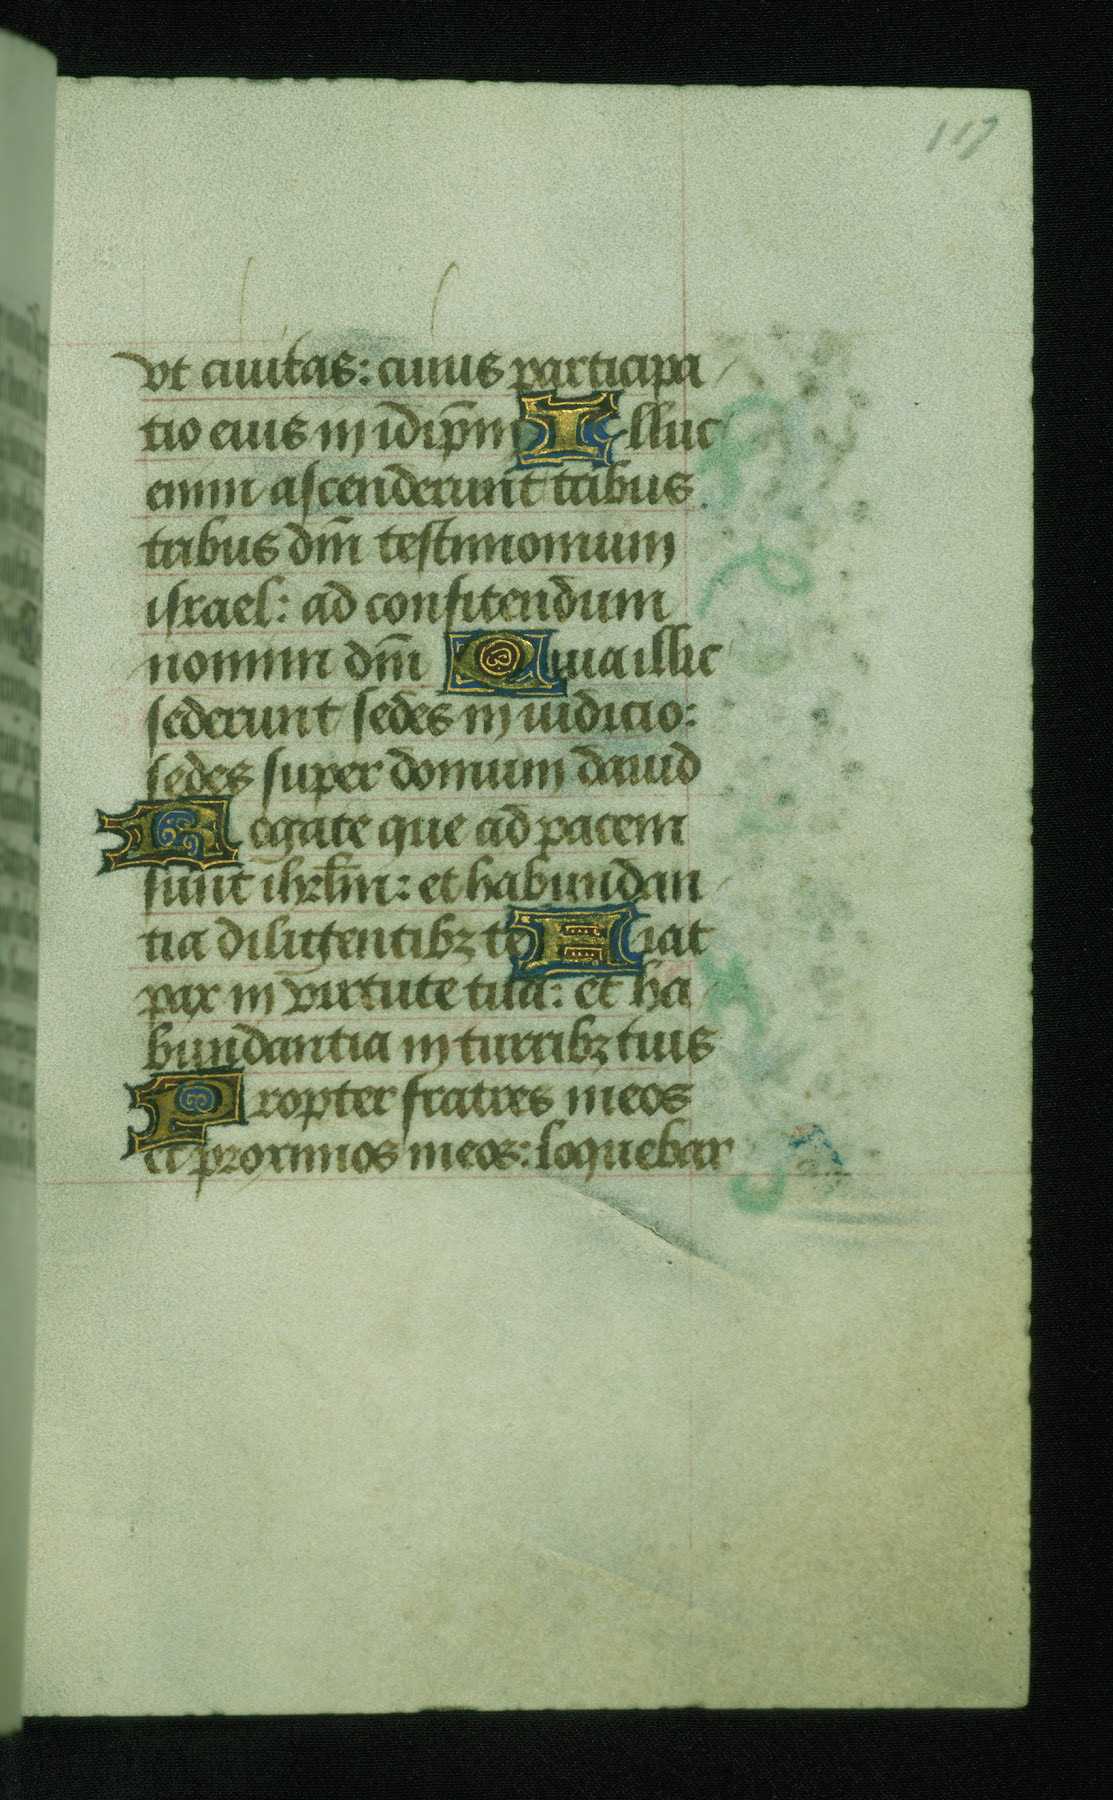 117
vt ciuitas: cuius participa
tio eius in id̄ip̄m Illuc
enim ascenderunt tribus
tribus dn̄i testimonium
israel: ad confitendum
nomini dn̄i Quia illic
sederunt sedes in iudicio:
sedes super domum dauid
Rogate que ad pacem
sunt ihrlm̄: et habundan
tia diligentibꝫ te Fiat
pax in virtute tua: et ha
bundantia in turribꝫ tuis
Propter fratres meos
et proximos meos: loquebar